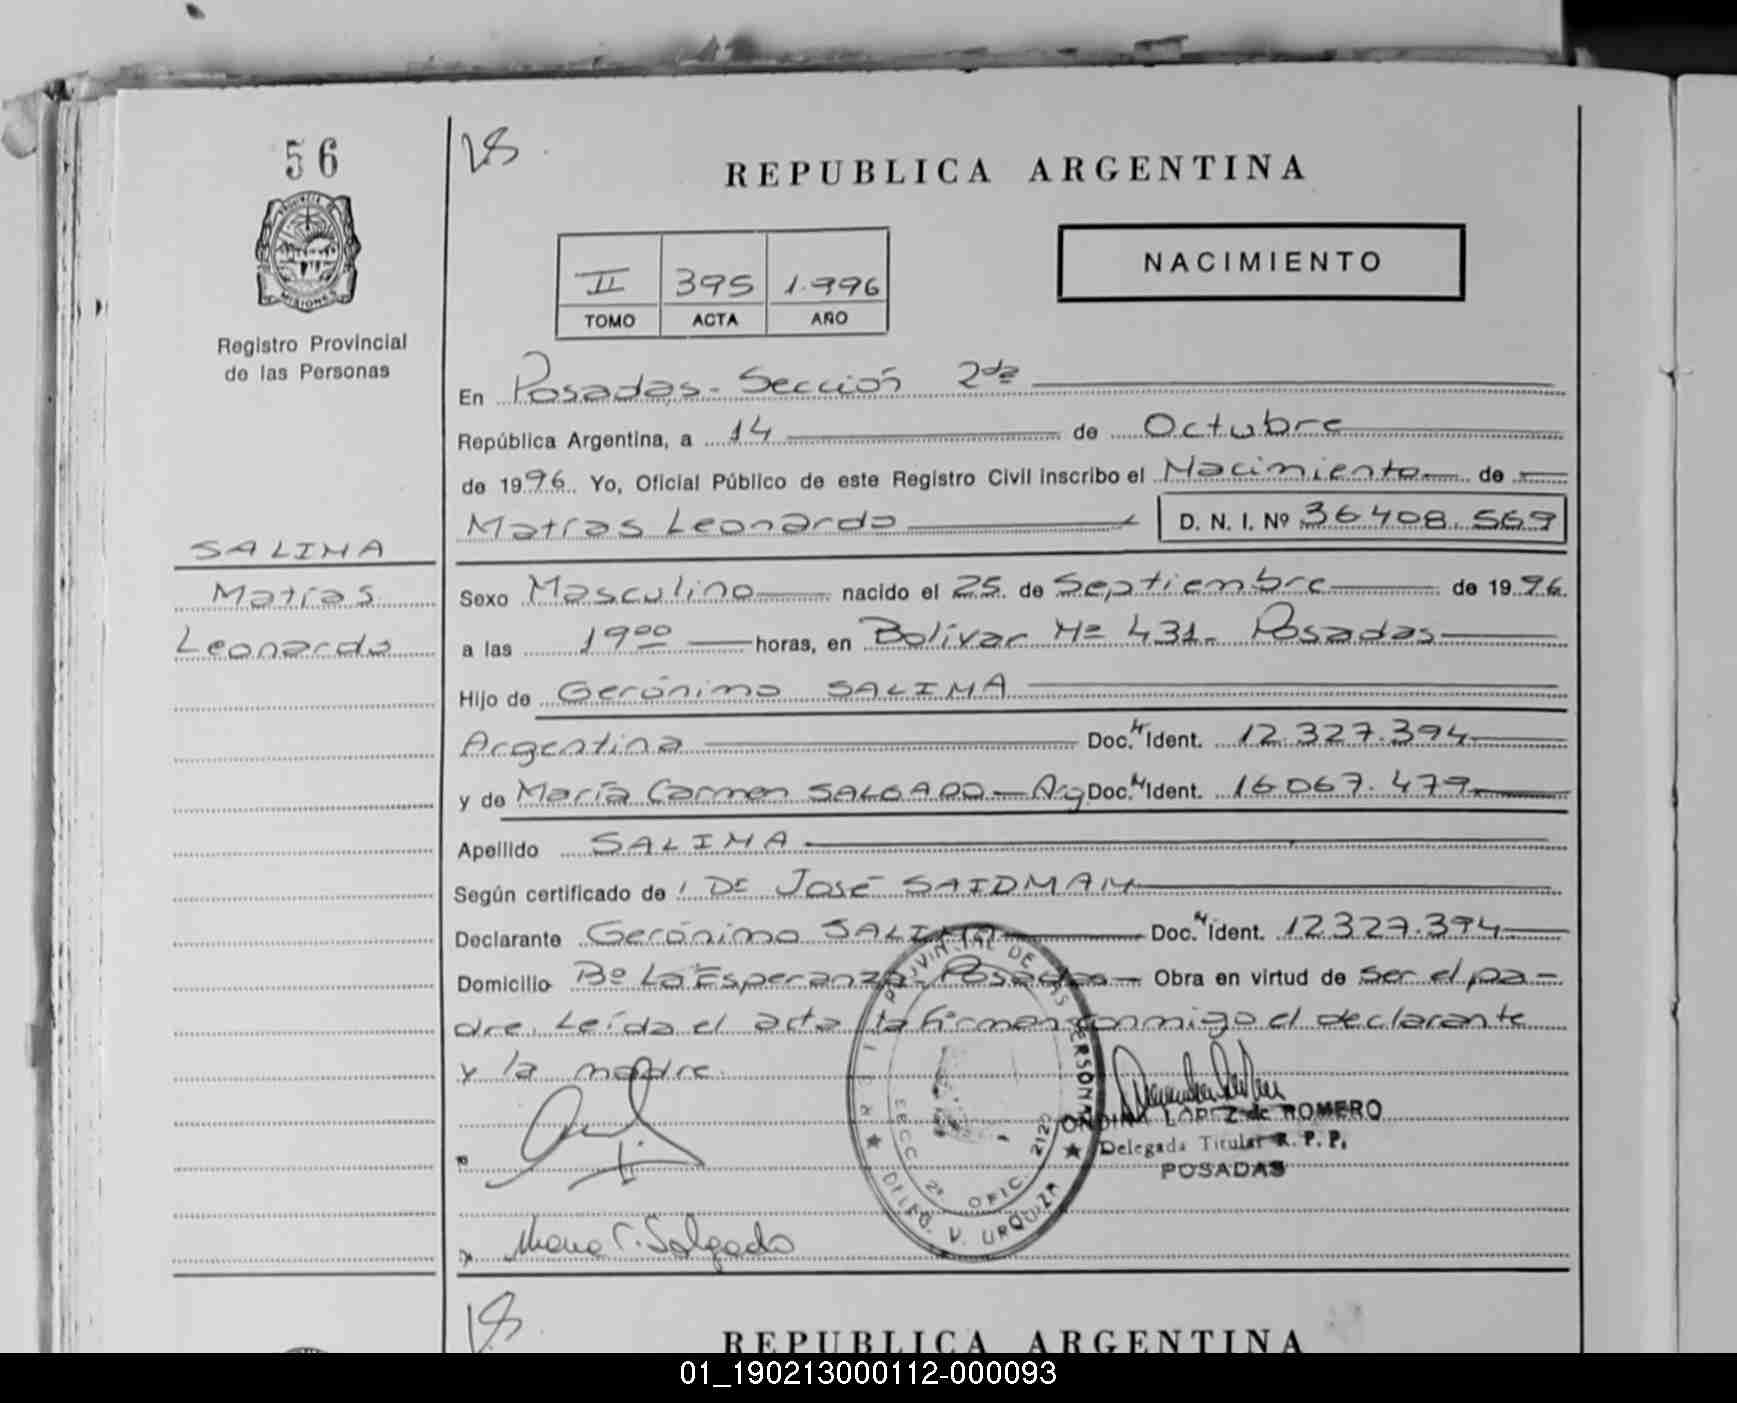 56
VS
REPUBLICA ARGENTINA
PROVINCIA DE MISIONES
Registro Provincial
de las Personas
II 395 1.996
TOMO ACTA AÑO
NACIMIENTO
En Posadas - Sección 2da
República Argentina, a 14 de Octubre
de 1996. Yo, Oficial Público de este Registro Civil inscribo el Nacimiento de
Matras Leonardo D. N. I. Nº 36.408.569
SALINA
Matras
Leonardo
Sexo Masculino nacido el 25 de Septiembre de 1996.
a las 19 00 horas, en Bolívar Nº 431 - Posadas
Hijo de Gerónimo SALINA
Argentina Doc. N Ident. 12.327.394
y de María Carmen SALGADO - Arg Doc. N Ident. 16.067.479
Apellido SALINA
Según certificado de Dr José SAIDMAN
Declarante Gerónimo SALINA Doc. N Ident. 12.327.394
Domicilio Bº La Esperanza - Posadas - Obra en virtud de ser el pa-
dre. Leída el acta la firman conmigo el declarante
y la madre.
PROVINCIAL DE LAS PERSONAS
SECC. 2ª OFIC. 2122
DELEG. V. URQUIZA
LOPEZ de ROMERO
Delegada Titular R. P. P.
POSADAS
Maria C. Salgado
REPUBLICA ARGENTINA
01_190213000112-000093